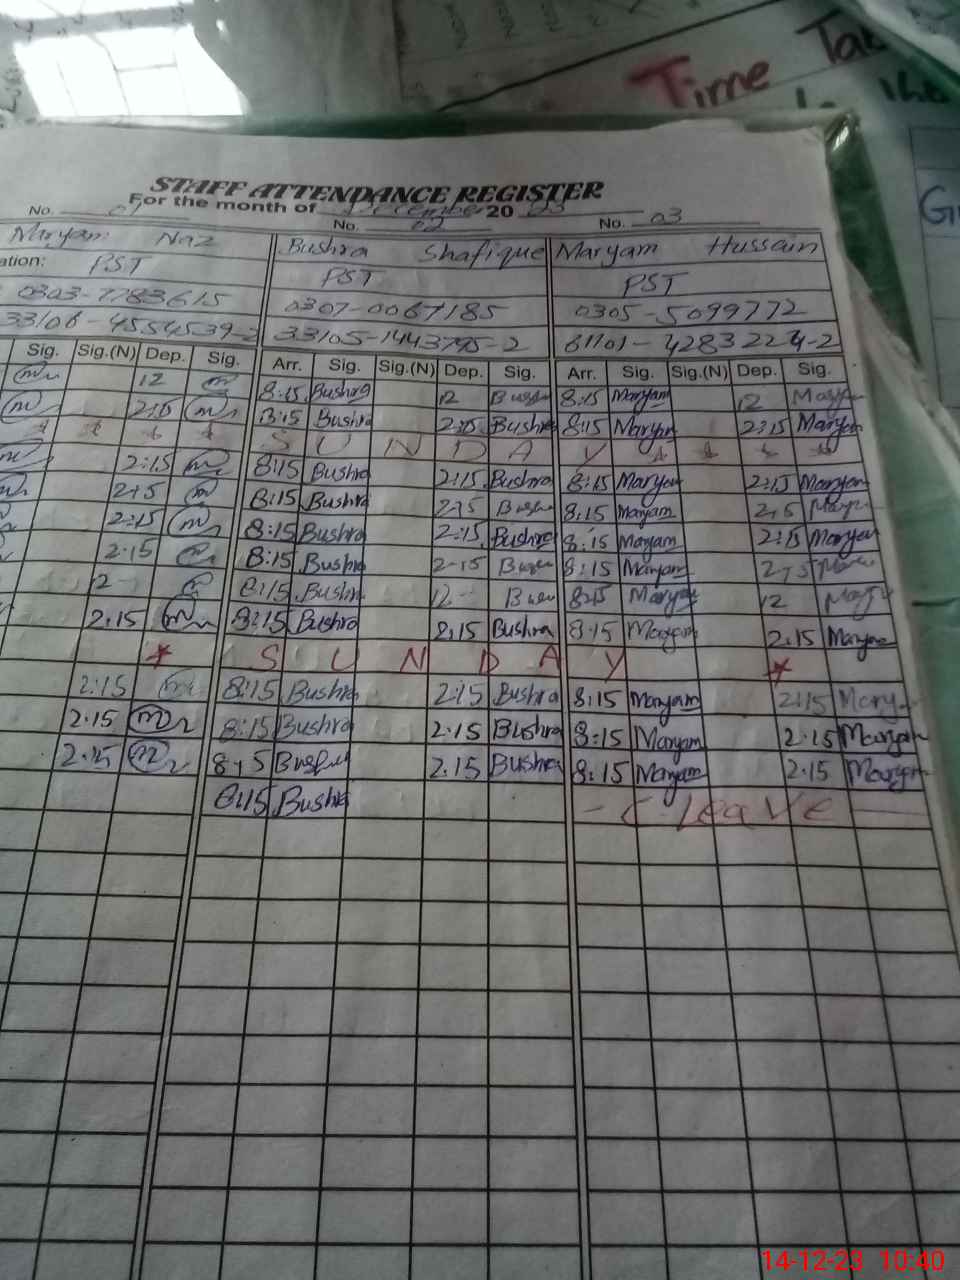 Time
STAFF ATTENDANCE REGISTER
For the month of December 20 23
No. 01 No. 02 No. 03
Maryam Naz Bushra Shafique Maryam Hussain
ation: PST PST PST
0303-7783615 0307-0067185 0305-5099772
33106-4554539-2 33105-1443795-2 61101-4283224-2
Sig. Sig.(N) Dep. Sig. Arr. Sig. Sig.(N) Dep. Sig. Arr. Sig. Sig.(N) Dep. Sig.
12 8:15 Bushra 12 8:15 Maryam 12 Maryam
2:15 8:15 Bushra 2:15 Bushra 8:15 Maryam 2:15 Maryam
SUNDAY
2:15 8:15 Bushra 2:15 Bushra 8:15 Maryam 2:15 Maryam
2:15 8:15 Bushra 2:15 8:15 Maryam 2:15
2:15 8:15 Bushra 2:15 Bushra 8:15 Maryam 2:15 Maryam
2:15 8:15 Bushra 2:15 8:15 Maryam 2:15
12 8:15 Bushra 12 8:15 Maryam 12
2:15 8:15 Bushra 2:15 Bushra 8:15 Maryam 2:15 Maryam
SUNDAY
2:15 8:15 Bushra 2:15 Bushra 8:15 Maryam 2:15
2:15 8:15 Bushra 2:15 Bushra 8:15 Maryam 2:15 Maryam
2:15 8:15 2:15 Bushra 8:15 Maryam 2:15 Maryam
8:15 Bushra - C. Leave
14-12-23 10:40